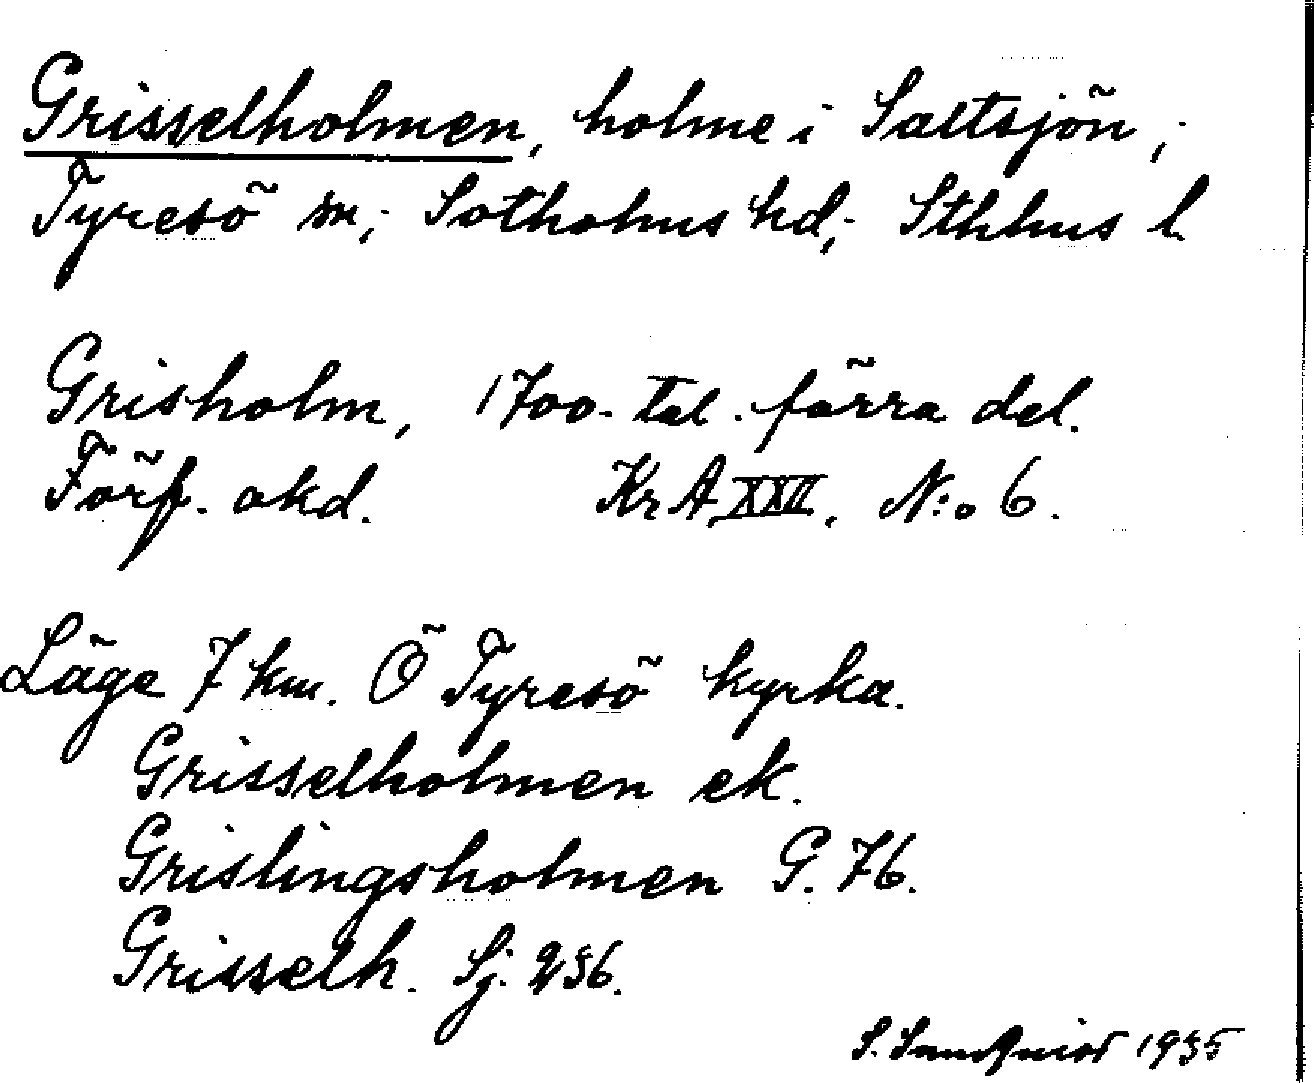 Grisselholmen, holme i Saltsjön,
Tyresö sn, Sotholms hd, Sthlms l
Grisholm, 1700-tal. förra del.
Förf. okd. Kr A, XXII, N:o 6.
Läge 7 km. Ö Tyresö kyrka.
Grisselholmen ek.
Grislingsholmen G. 76.
Grisselh. Sj. 236.
S. 1935